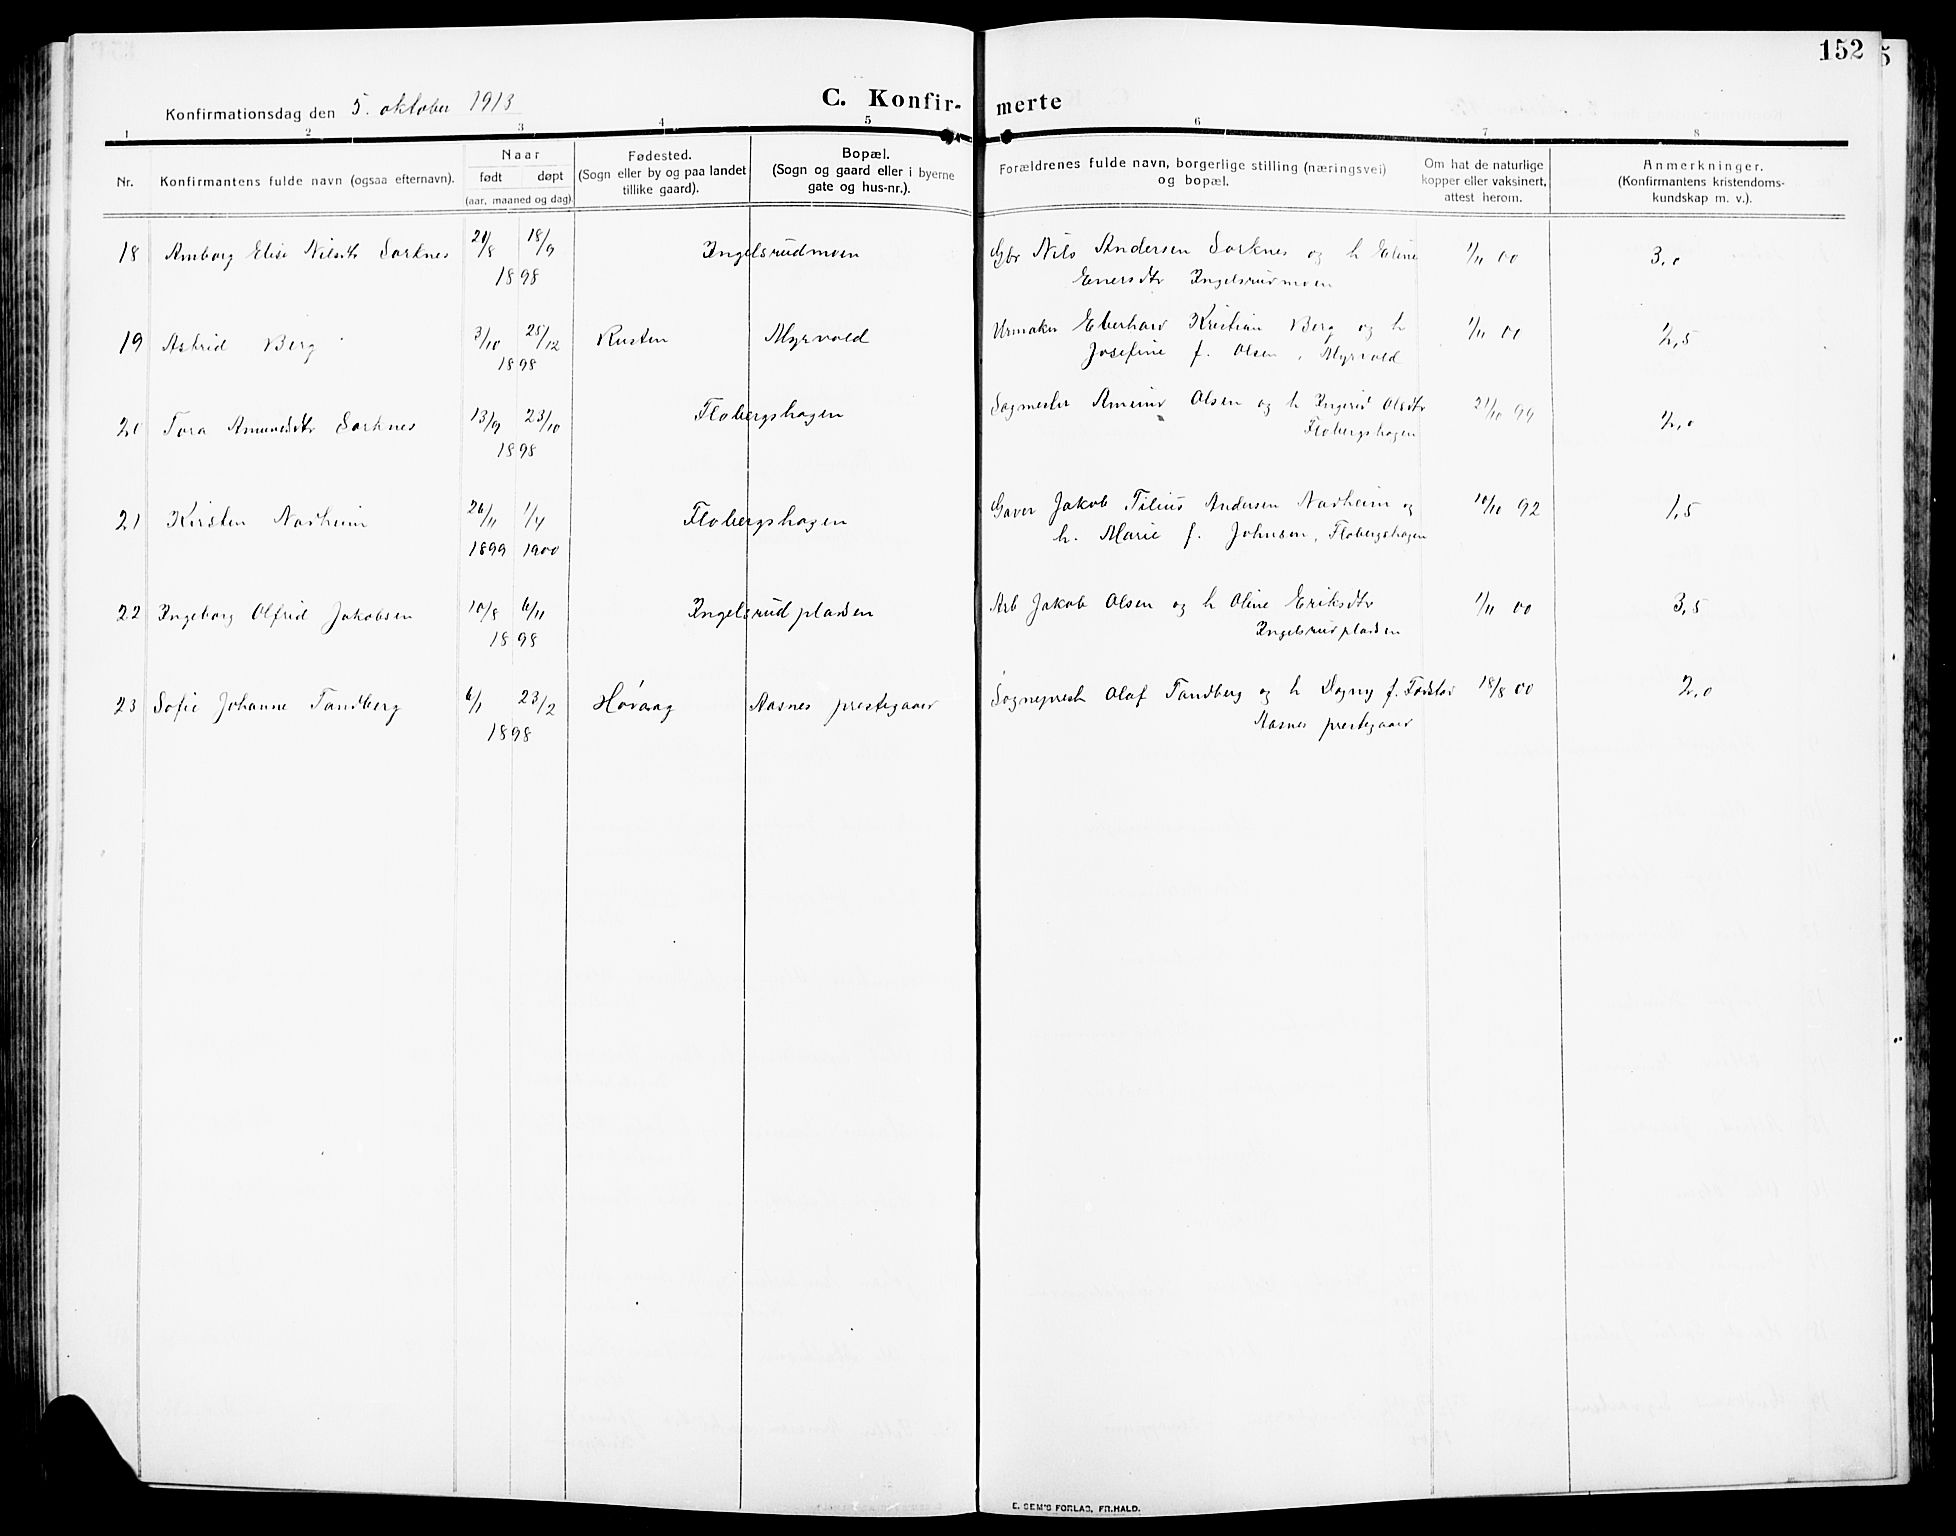 152
Konfirmationsdag den 5. oktober 1913
C. Konfir- merte
1 2 3 4 5 6 7 8
Nr. Konfirmantens fulde navn (ogsaa efternavn). Naar født døpt (aar, maaned og dag) Fødested. (Sogn eller by og paa landet tillike gaard). Bopæl. (Sogn og gaard eller i byerne gate og hus-nr.). Forældrenes fulde navn, borgerlige stilling (næringsvei) og bopæl. Om hat de naturlige kopper eller vaksinert, attest herom. Anmerkninger. (Konfirmantens kristendoms- kundskap m. v.).
18 Amborg Elise Nilsdtr Sorknes 18/9 Ingelsrudmoen Gbr Nils Andersen Sorknes og h Eline 1/11 00 3,0
1898 Enersdtr Ingelsrudmoen
19 Astrid Berg 3/10 25/12 Rusten Myrvold Urmaker Eberhard Kristian Berg og h 1/11 00 2,5
1898 Josefine f. Olsen, Myrvold
20 Tora Amundsdtr Sorknes 13/9 23/10 Flobergshagen Sagmester Amund Olsen og h Ingerid Olsdtr 21/10 99 2,0
1898 Flobergshagen
21 Kirsten Nordheim 26/11 1/4 Flobergshagen Garver Jakob Tilius Andersen Nordheim og 10/10 92 1,5
1899 1900 h. Marie f. Johnsen, Flobergshagen
22 Ingeborg Olfrid Jakobsen 10/8 6/11 Ingelsrudpladsen Arb Jakob Olsen og h Oline Eriksdtr 1/11 00 3,5
1898 Ingelsrudpladsen
23 Sofie Johanne Tandberg 6/1 23/2 Høvaag Aasnes prestegaard Sogneprest Olaf Tandberg og h Dagny f. 18/8 00 2,0
1898 Aasnes prestegaard
E. SEM'S FORLAG, FR.HALD.